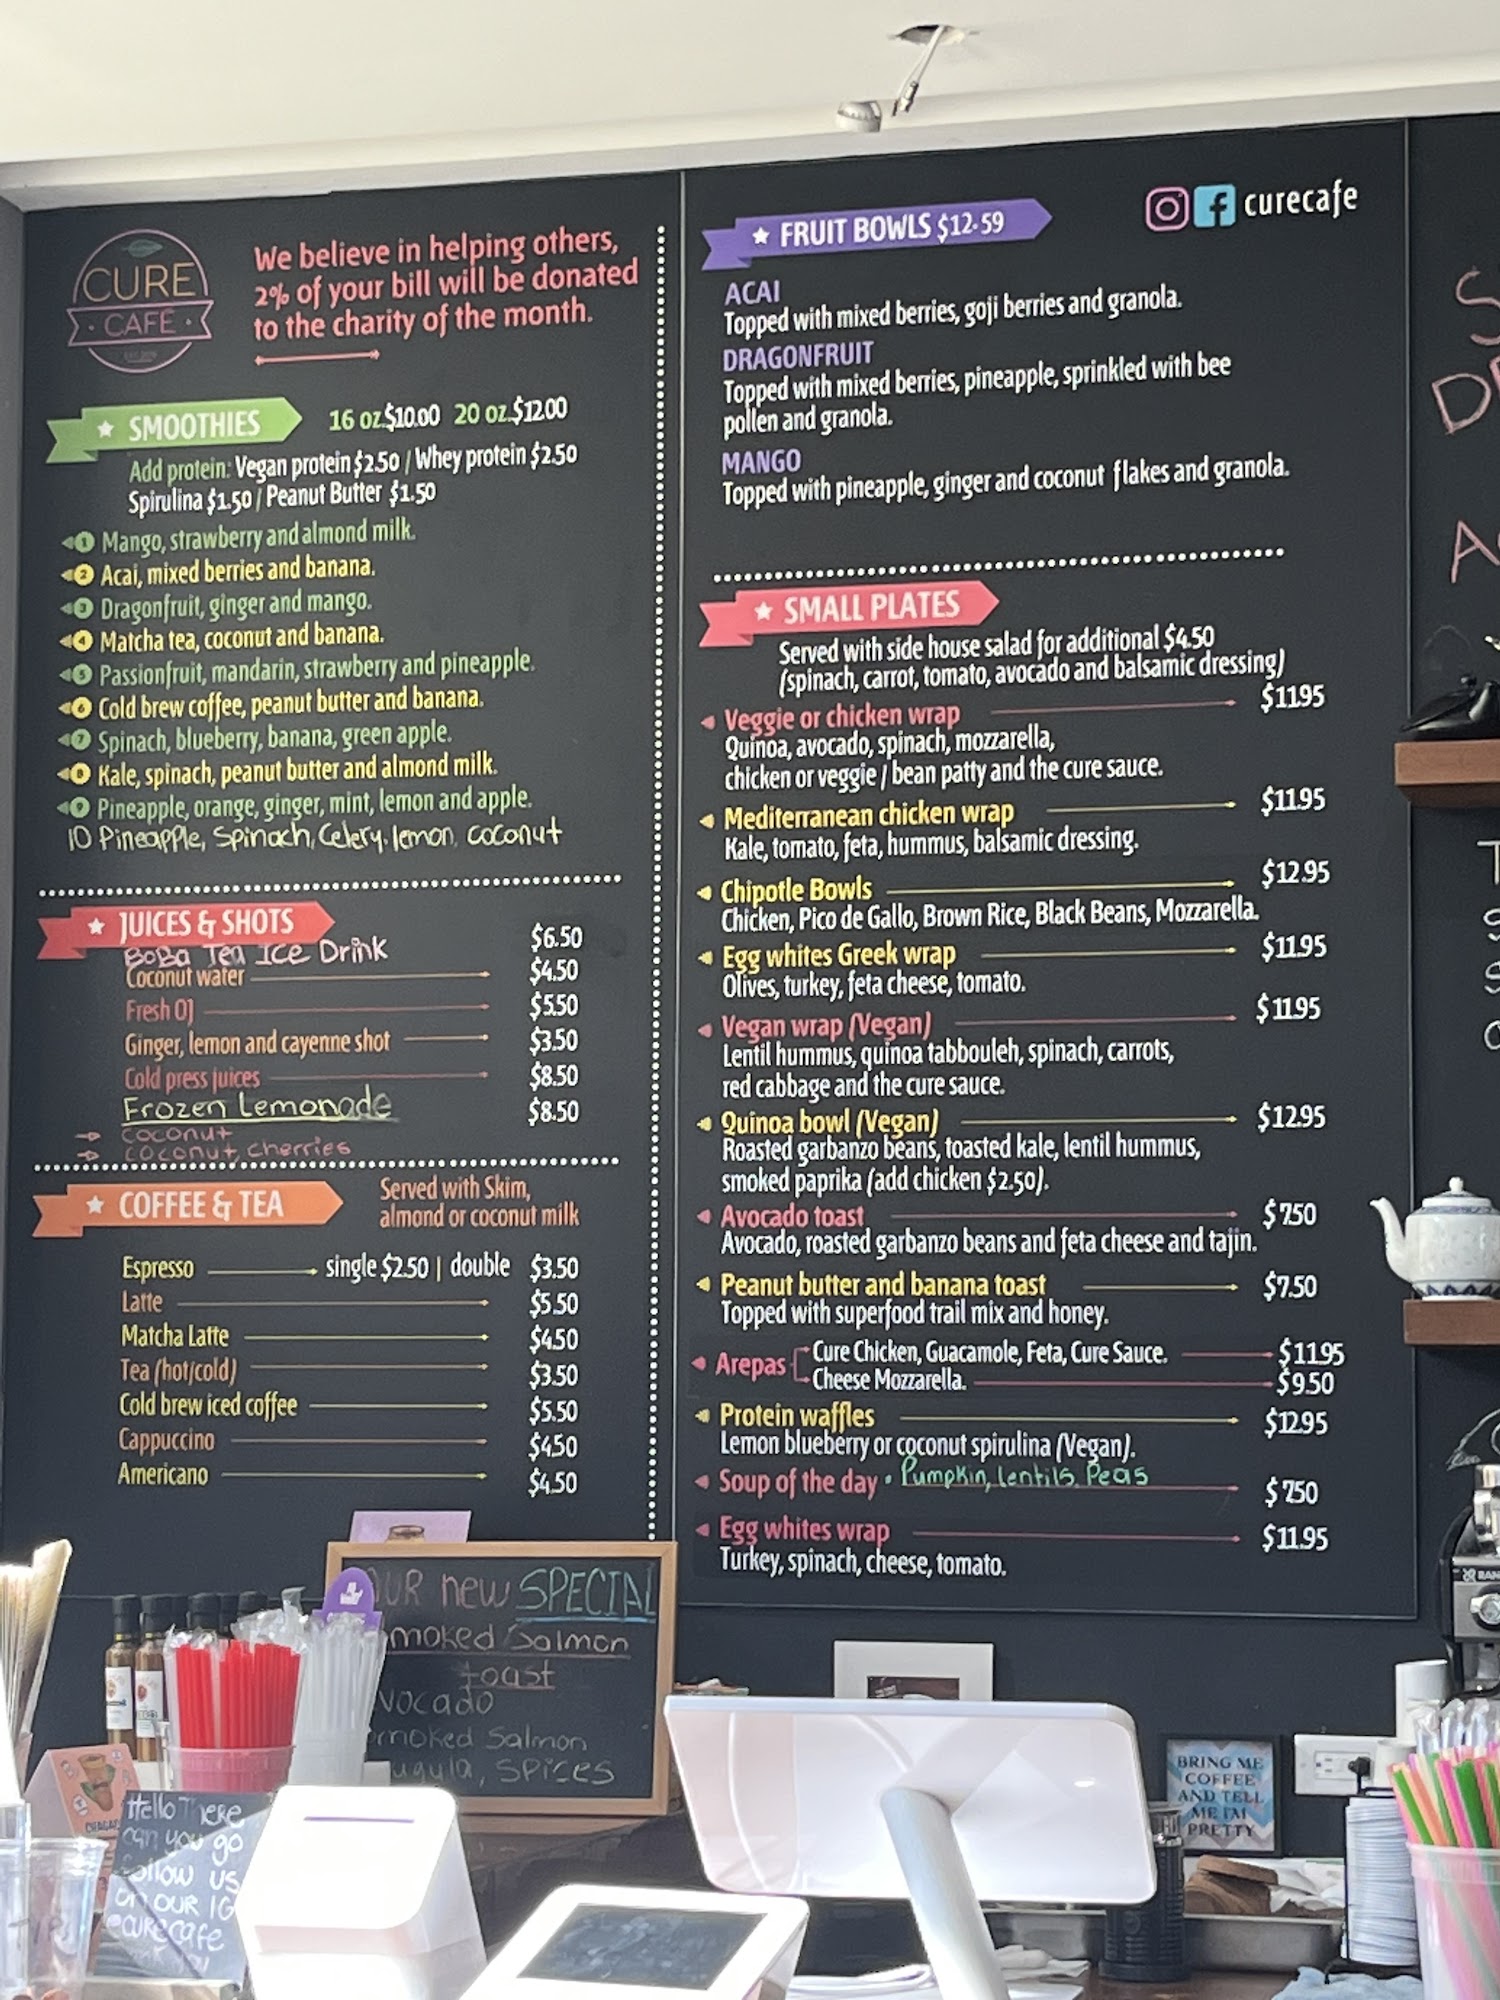 CURE
CAFÉ
We believe in helping others,
2% of your bill will be donated
to the charity of the month.
SMOOTHIES 16 oz.$10.00 20 oz.$12.00
Add protein: Vegan protein $2.50 / Whey protein $2.50
Spirulina $1.50 / Peanut Butter $1.50
1 Mango, strawberry and almond milk.
2 Acai, mixed berries and banana.
3 Dragonfruit, ginger and mango.
4 Matcha tea, coconut and banana.
5 Passionfruit, mandarin, strawberry and pineapple.
6 Cold brew coffee, peanut butter and banana.
7 Spinach, blueberry, banana, green apple.
8 Kale, spinach, peanut butter and almond milk.
9 Pineapple, orange, ginger, mint, lemon and apple.
10 Pineapple, Spinach, Celery, lemon, coconut
JUICES & SHOTS
BoBa Tea Ice Drink $6.50
Coconut water $4.50
Fresh OJ $5.50
Ginger, lemon and cayenne shot $3.50
Cold press juices $8.50
Frozen Lemonade $8.50
coconut
coconut, cherries
COFFEE & TEA Served with Skim,
almond or coconut milk
Espresso single $2.50 | double $3.50
Latte $5.50
Matcha Latte $4.50
Tea (hot/cold) $3.50
Cold brew iced coffee $5.50
Cappuccino $4.50
Americano $4.50
FRUIT BOWLS $12.59
curecafe
ACAI
Topped with mixed berries, goji berries and granola.
DRAGONFRUIT
Topped with mixed berries, pineapple, sprinkled with bee
pollen and granola.
MANGO
Topped with pineapple, ginger and coconut flakes and granola.
SMALL PLATES
Served with side house salad for additional $4.50
(spinach, carrot, tomato, avocado and balsamic dressing)
Veggie or chicken wrap $11.95
Quinoa, avocado, spinach, mozzarella,
chicken or veggie / bean patty and the cure sauce.
Mediterranean chicken wrap $11.95
Kale, tomato, feta, hummus, balsamic dressing.
Chipotle Bowls $12.95
Chicken, Pico de Gallo, Brown Rice, Black Beans, Mozzarella.
Egg whites Greek wrap $11.95
Olives, turkey, feta cheese, tomato.
Vegan wrap (Vegan) $11.95
Lentil hummus, quinoa tabbouleh, spinach, carrots,
red cabbage and the cure sauce.
Quinoa bowl (Vegan) $12.95
Roasted garbanzo beans, toasted kale, lentil hummus,
smoked paprika (add chicken $2.50).
Avocado toast $7.50
Avocado, roasted garbanzo beans and feta cheese and tajin.
Peanut butter and banana toast $7.50
Topped with superfood trail mix and honey.
Arepas Cure Chicken, Guacamole, Feta, Cure Sauce. $11.95
Cheese Mozzarella. $9.50
Protein waffles $12.95
Lemon blueberry or coconut spirulina (Vegan).
Soup of the day • Pumpkin, lentils, Peas $7.50
Egg whites wrap $11.95
Turkey, spinach, cheese, tomato.
OUR new SPECIAL
moked Salmon
toast
vocado
moked Salmon
ugula, spices
Hello There
can you go
follow us
on our IG
@curecafe
BRING ME
COFFEE
AND TELL
ME I'M
PRETTY